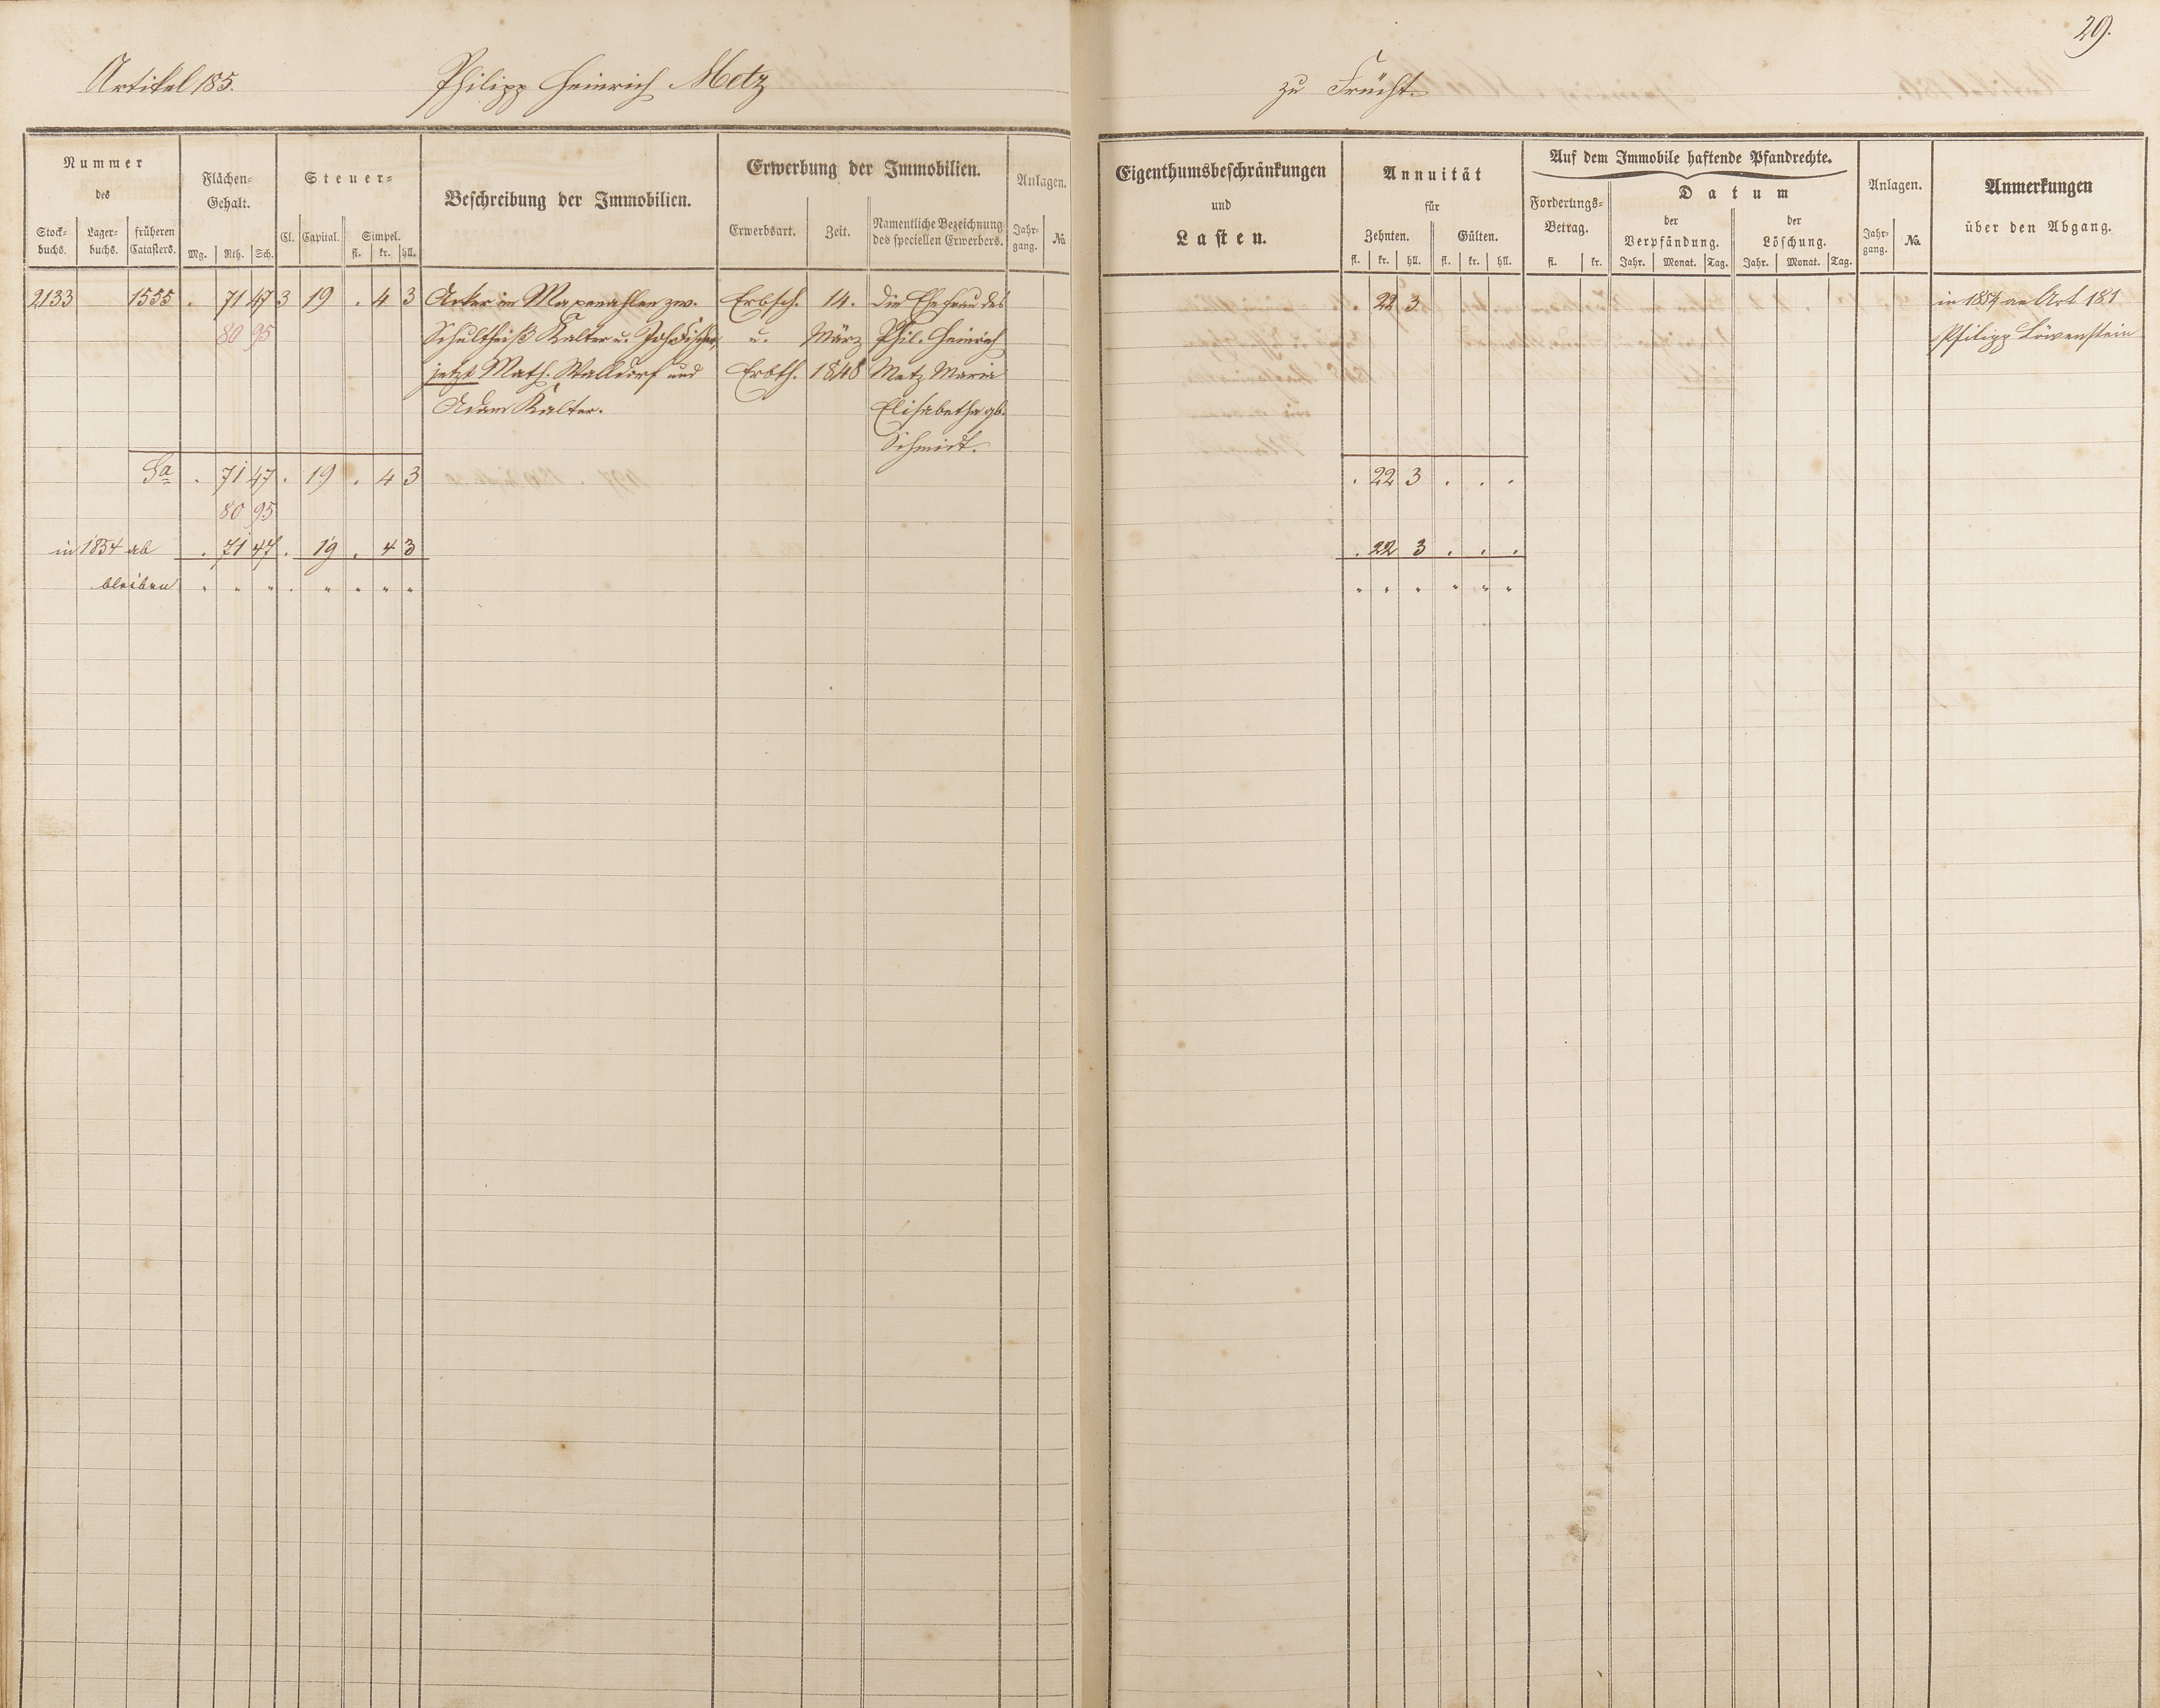 29.
Artikel 185. Philipp Heinrich Metz zu Frücht.
Nummer des
Stock-buchs. Lager-buchs. früheren Catasters.
Flächen-Gehalt.
Mg. Rth. Sch.
Steuer-
Cl. Capital. Simpel.
fl. kr. hll.
Beschreibung der Immobilien.
Erwerbung der Immobilien.
Erwerbsart. Zeit. Namentliche Bezeichnung des speciellen Erwerbers.
Anlagen.
Jahr-gang. No.
Eigenthumsbeschränkungen
und
Lasten.
Annuität
für
Zehnten. Gülten.
fl. kr. hll. fl. kr. hll.
Auf dem Immobile haftende Pfandrechte.
Forderungs-Betrag.
fl. kr.
Datum
der Verpfändung. der Löschung.
Jahr. Monat. Tag. Jahr. Monat. Tag.
Anlagen.
Jahr-gang. No.
Anmerkungen
über den Abgang.
2133 1555 . 71 47 3 19 . 4 3 Acker im zw. Erbsch. 14. Die Ehefrau des . 22 3 in 1854 an Art 181
80 95 Schultheiß Kalter u. Joh Fischer, u. März Phil. Heinrich Philipp Löwenstein
jetzt Math. Walldorf und Erbth. 1848 Metz Maria
Adam Kalter. Elisabetha gb.
Schmidt.
Sa . 71 47 . 19 . 4 3 . 22 3 . . .
80 95
in 1854 ab . 71 47 . 19 . 4 3 . 22 3 . . .
bleiben " " " . " " " " " " " " " "